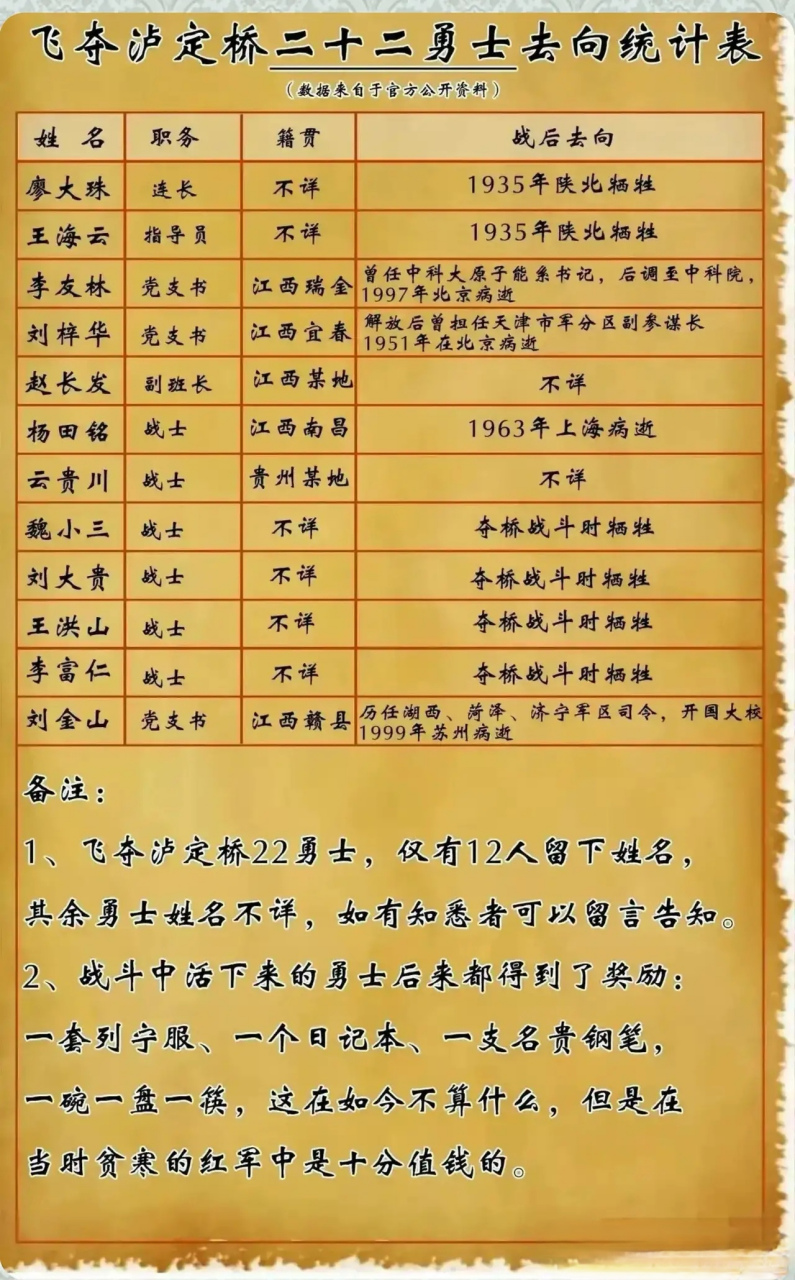 飞夺泸定桥二十二勇士去向统计表
（数据来自于官方公开资料）
姓 名 职务 籍贯 战后去向
廖大珠 连长 不详 1935年陕北牺牲
王海云 指导员 不详 1935年陕北牺牲
李友林 党支书 江西瑞金 曾任中科大原子能系书记，后调至中科院，
1997年北京病逝
刘梓华 党支书 江西宜春 解放后曾担任天津市军分区副参谋长
1951年在北京病逝
赵长发 副班长 江西某地 不详
杨田铭 战士 江西南昌 1963年上海病逝
云贵川 战士 贵州某地 不详
魏小三 战士 不详 夺桥战斗时牺牲
刘大贵 战士 不详 夺桥战斗时牺牲
王洪山 战士 不详 夺桥战斗时牺牲
李富仁 战士 不详 夺桥战斗时牺牲
刘金山 党支书 江西赣县 历任湖西、菏泽、济宁军区司令，开国大校
1999年苏州病逝
备注：
1、飞夺泸定桥22勇士，仅有12人留下姓名，
其余勇士姓名不详，如有知悉者可以留言告知。
2、战斗中活下来的勇士后来都得到了奖励：
一套列宁服、一个日记本、一支名贵钢笔，
一碗一盘一筷，这在如今不算什么，但是在
当时贫寒的红军中是十分值钱的。